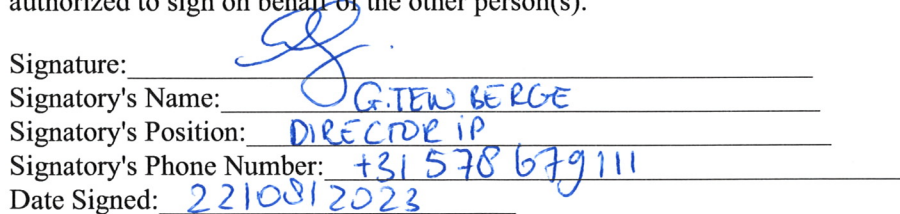 authorized to sign on behalf of the other person(s).
Signature:
Signatory's Name: G.TEW BERGE
Signatory's Position: DIRECTOR iP
Signatory's Phone Number: +31 578 679111
Date Signed: 22/08/2023